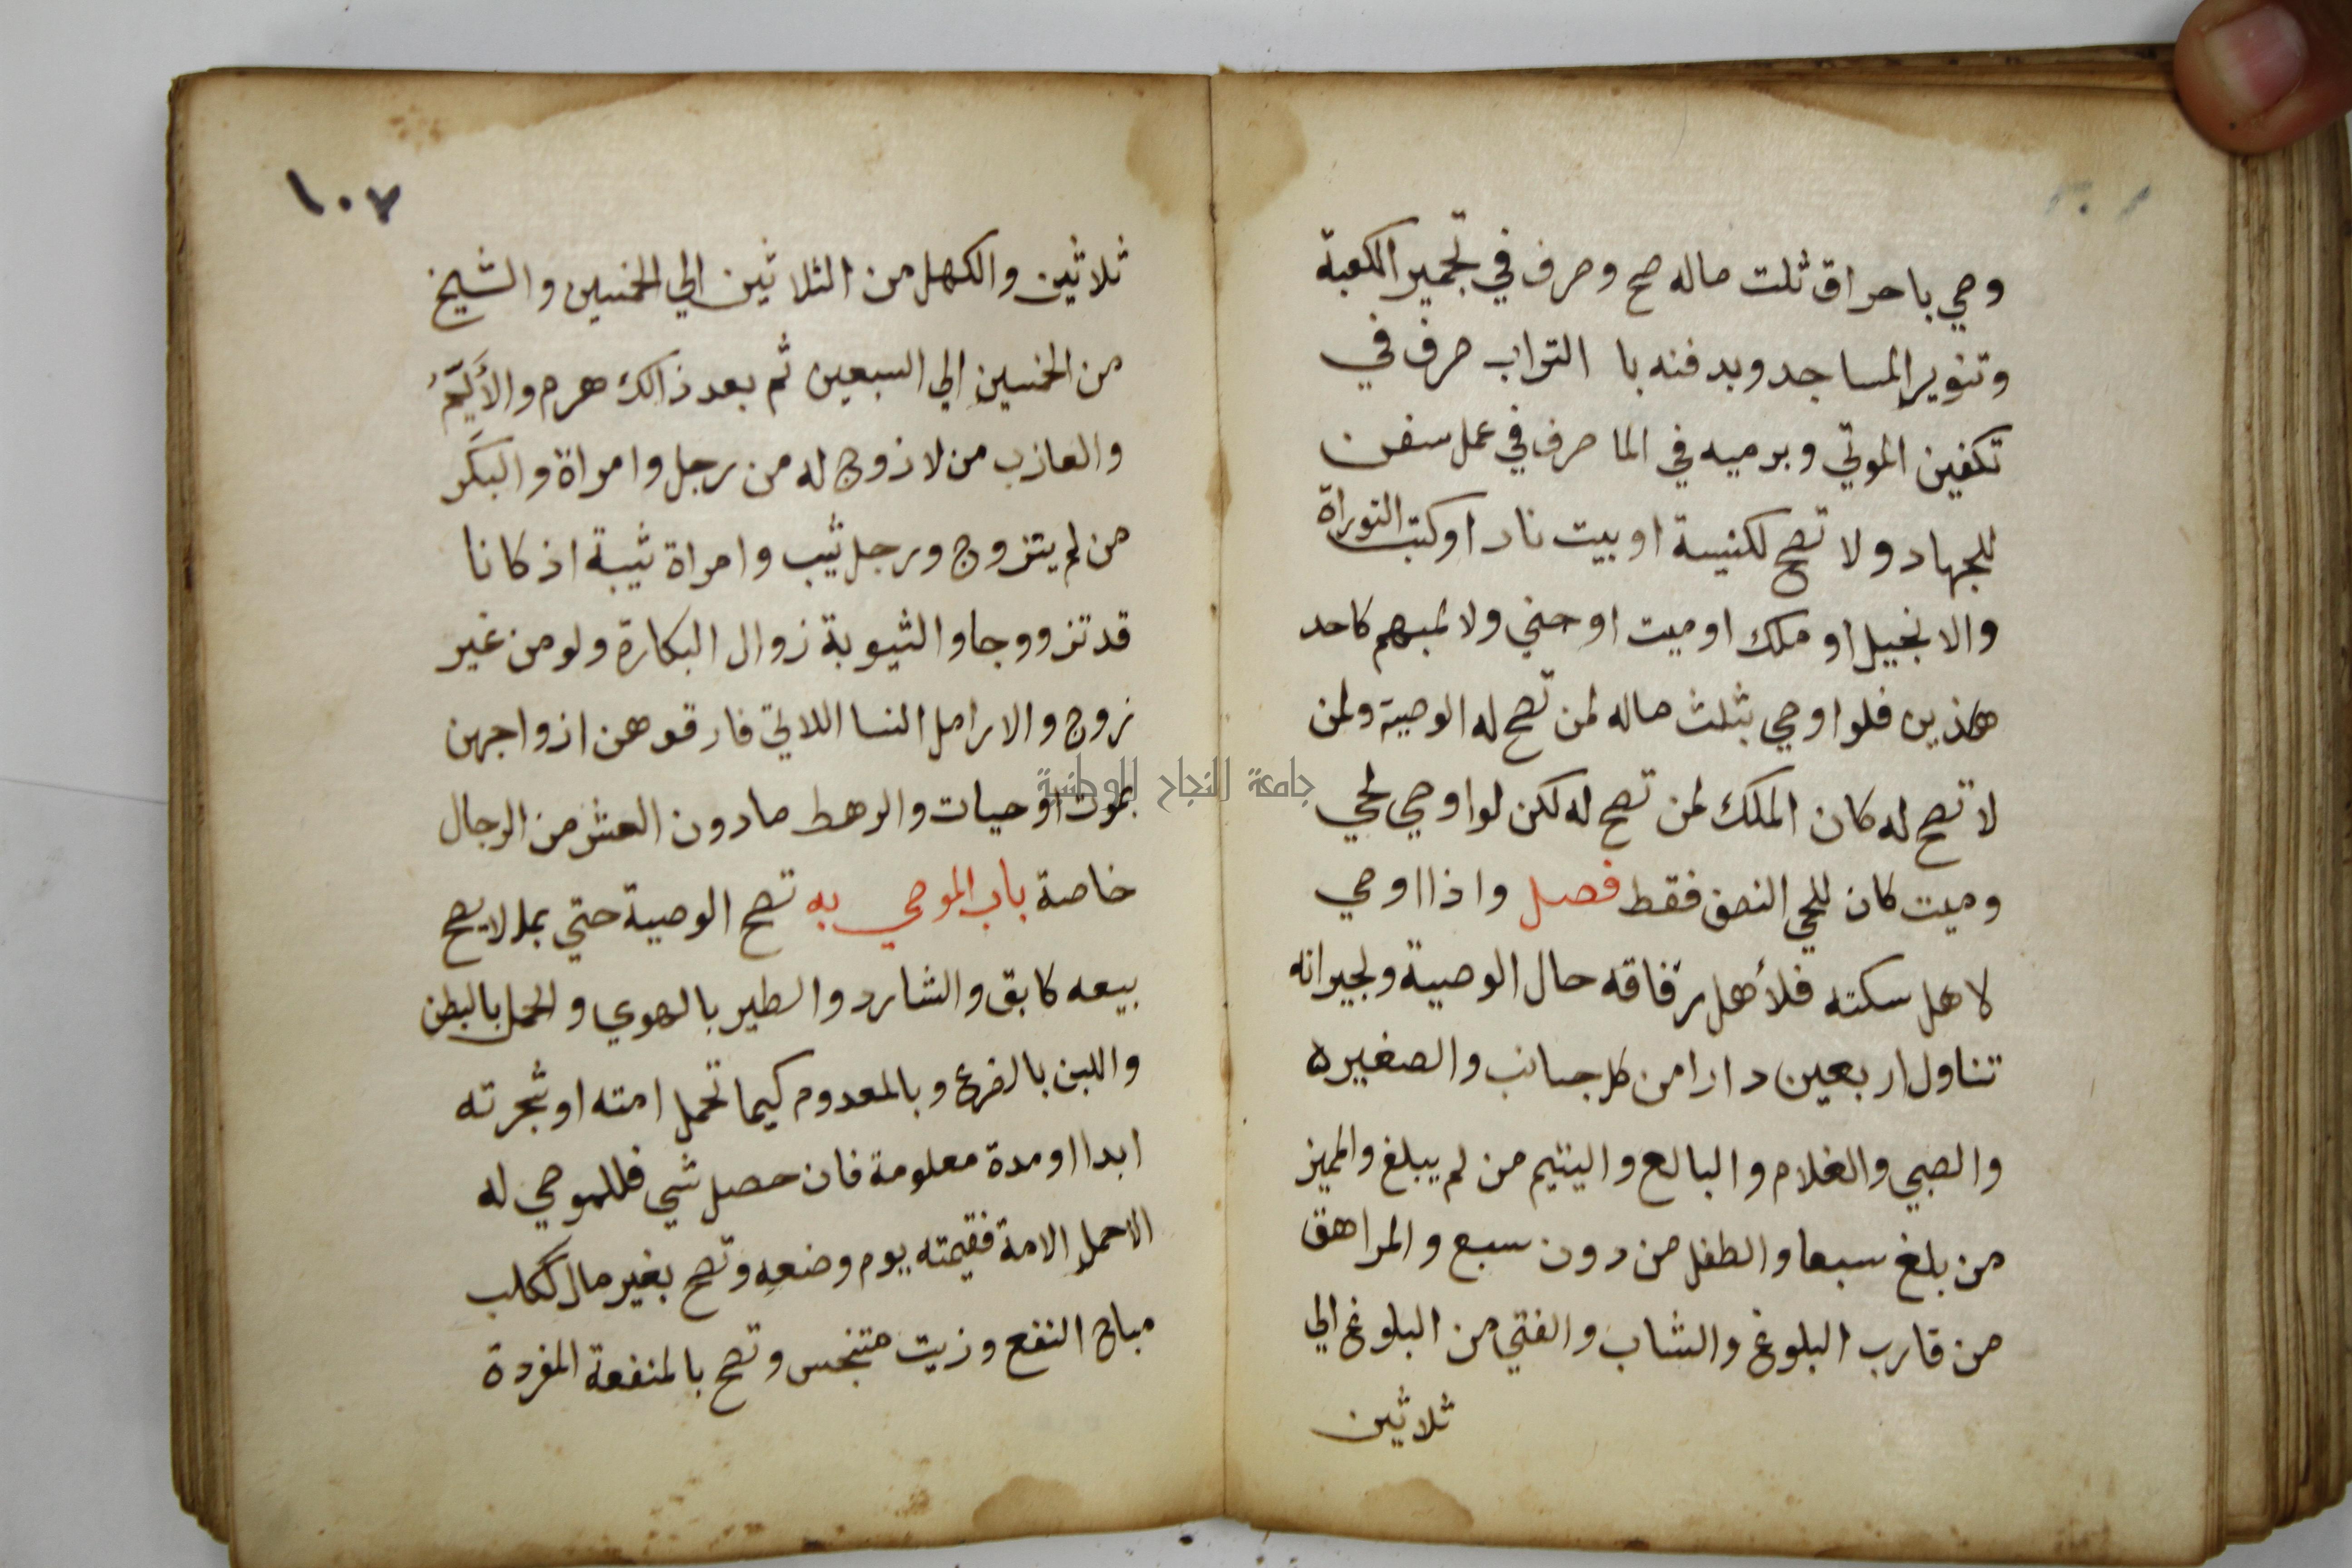 وصي باحراق ثلت ماله صح وصرف في تجمير الكعبة
وتنوير المساجد وبدفنه با التراب صرف في
تكفين الموتي وبرميه في الما صرف في عمل سفن
للجهاد ولا تصح لكنيسة او بيت نار او كتب التوراة
والانجيل او ملك او ميت او جني ولا لمبهم كاحد
هاذين فلو اوصي بثلث ماله لمن تصح له الوصية ولمن
لا تصح له كان الملك لمن تصح له لكن لو اوصي لحي
وميت كان للحي النصف فقط فصل واذا اوصي
لاهل سكته فلأهل زقاقه حال الوصية ولجيرانه
تناول اربعين دارا من كل جانب والصغيره
والصبي والغلام والبالع واليتيم من لم يبلغ والمميز
من بلغ سبعا والطفل من دون سبع والمراهق
من قارب البلوغ والشاب والفتي من البلوغ الي
ثلاثين
١٠٧
ثلاثين والكهل من الثلاثين الي الخمسين والشيخ
من الخمسين الي السبعين ثم بعد ذالك هرم والأَيّمُ
والعازب من لا زوج له من رجل وامراة والبكَر
من لم يتزوج ورجل ثيب وامراة ثيبة اذ كانا
قد تزووجا والثيوبة زوال البكارة ولو من غير
زوج والارامل النسا اللاتي فارقوهن ازواجهن
بموت او حيات والرهط مادون العشر من الرجال
خاصة باب الموصي به تصح الوصية حتي بما لا يصح
بيعه كابق والشارد والطير بالهوي والحمل بالبطن
واللبن بالضرع وبالمعدوم كبما تحمل امته او شجرته
ابدا او مدة معلومة فان حصل شي فللموصي له
الا حمل الامة فقيمته يوم وضعه وتصح بغير مال ككلب
مباح النفع وزيت متنجس وتصح بالمنفعة المفردة
جامعة النجاح الوطنية